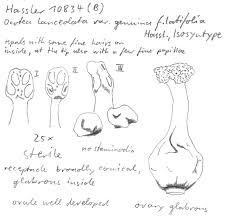 Hassler 10834 (B)
Ocotea lanceolata var. genuina f. latifolia
Hassl., Isosyntype
tepals with some fine hairs on
inside, at the tip also with a few fine papillae
I II III
no staminodia
25x
sterile
receptacle broadly conical,
glabrous inside
ovule well developed
ovary glabrous